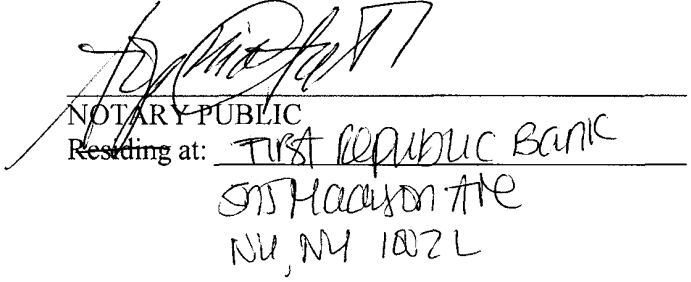 NOTARY PUBLIC
Residing at: First Republic Bank
Madison Ave
NY, NY